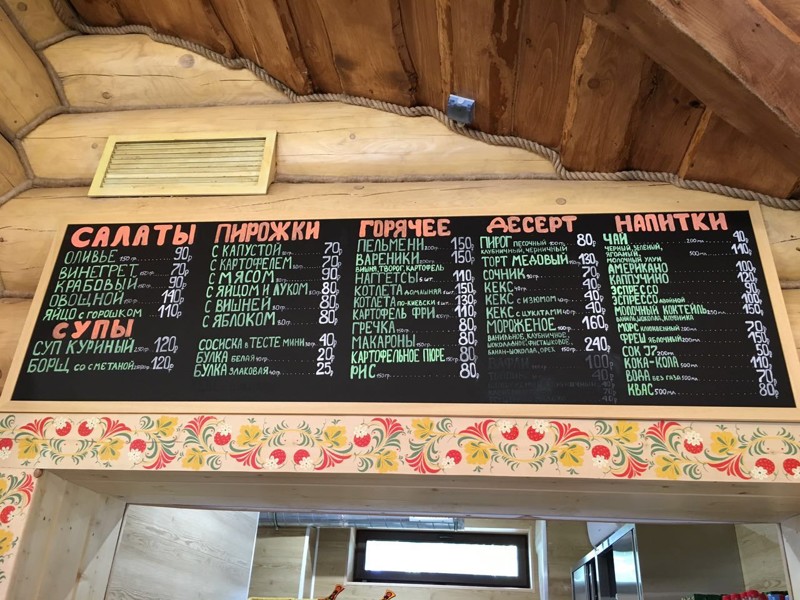 САЛАТЫ
ОЛИВЬЕ 150 гр. 90р
ВИНЕГРЕТ 150 гр. 70р
КРАБОВЫЙ 150 гр. 90р
ОВОЩНОЙ 150 гр. 140р
ЯЙЦО С ГОРОШКОМ 110р
СУПЫ
СУП КУРИНЫЙ 250 гр. 120р
БОРЩ, СО СМЕТАНОЙ 120р
ПИРОЖКИ
С КАПУСТОЙ 70р
С КАРТОФЕЛЕМ 70р
С МЯСОМ 90р
С ЯЙЦОМ И ЛУКОМ 80р
С ВИШНЕЙ 80р
С ЯБЛОКОМ 80р
СОСИСКА В ТЕСТЕ МИНИ 40р
БУЛКА БЕЛАЯ 20р
БУЛКА ЗЛАКОВАЯ 25р
ГОРЯЧЕЕ
ПЕЛЬМЕНИ 200 гр. 150р
ВАРЕНИКИ 150р
ВИШНЯ, ТВОРОГ, КАРТОФЕЛЬ
НАГГЕТСЫ 110р
КОТЛЕТА ДОМАШНЯЯ 150р
КОТЛЕТА ПО-КИЕВСКИ 150р
КАРТОФЕЛЬ ФРИ 110р
ГРЕЧКА 80р
МАКАРОНЫ 80р
КАРТОФЕЛЬНОЕ ПЮРЕ 80р
РИС 80р
ДЕСЕРТ
ПИРОГ ПЕСОЧНЫЙ 100 гр. 80р
КЛУБНИЧНЫЙ, ЧЕРНИЧНЫЙ
ТОРТ МЕДОВЫЙ 130р
СОЧНИК 70р
КЕКС 40р
КЕКС С ИЗЮМОМ 40р
КЕКС С ЦУКАТАМИ 40р
МОРОЖЕНОЕ 160р
ВАНИЛЬНОЕ, КЛУБНИЧНОЕ,
ШОКОЛАДНОЕ, ФИСТАШКОВОЕ,
БАНАН-ШОКОЛАД, ОРЕХ 150 гр. 240р
НАПИТКИ
ЧАЙ 200 мл 40р
ЧЕРНЫЙ, ЗЕЛЕНЫЙ,
ЯГОДНЫЙ, 500 мл 110р
МОЛОЧНЫЙ УЛУН
АМЕРИКАНО 100р
КАППУЧИНО
ЭСПРЕССО
ЭСПРЕССО ДВОЙНОЙ 100р
МОЛОЧНЫЙ КОКТЕЙЛЬ 150р
МОРС КЛЮКВЕННЫЙ 70р
ФРЕШ ЯБЛОЧНЫЙ 200 мл 150р
СОК J7 50р
КОКА-КОЛА 500 мл 110р
ВОДА БЕЗ ГАЗА 500 мл 70р
КВАС 500 мл 80р